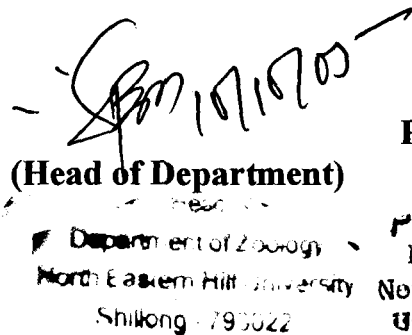 10/10/05
(Head of Department)
Head
Department of Zoology
North Eastern Hill University
Shillong - 793022